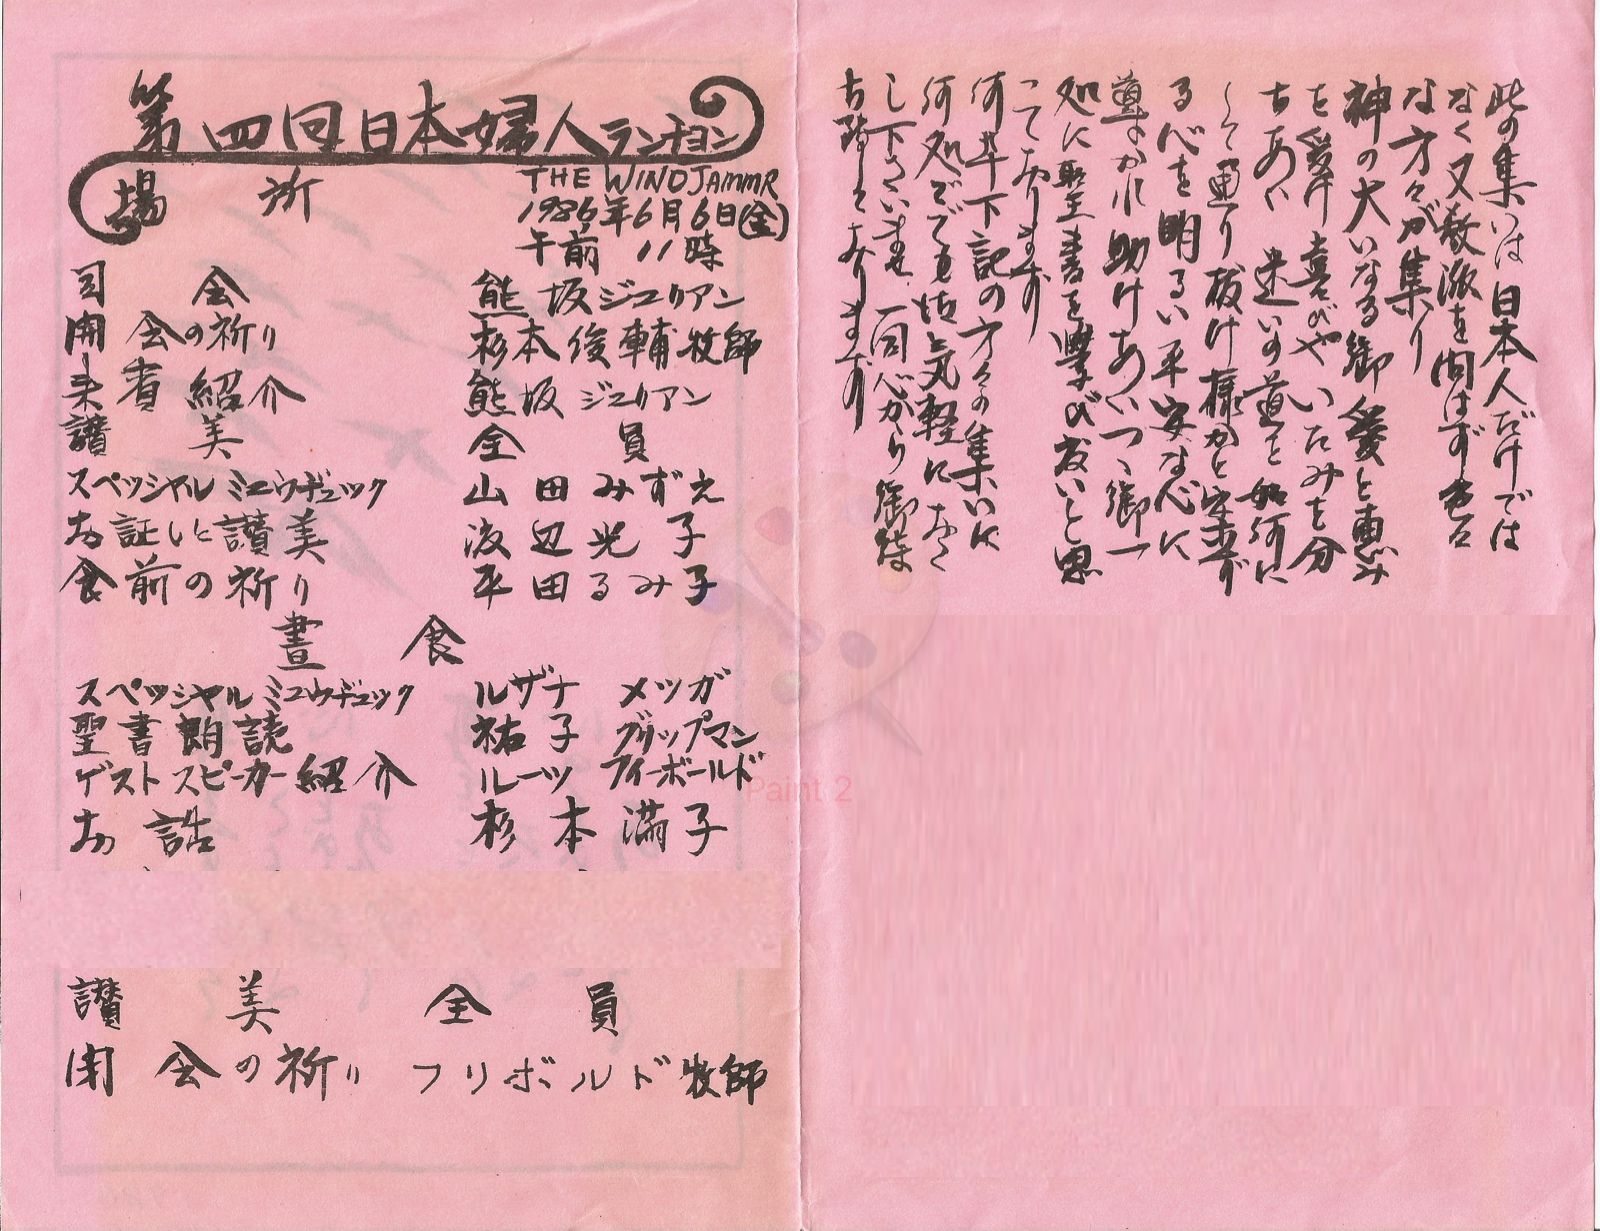 第四回日本婦人ランチョン
場所 THE WINDJAMMR
1986年6月6日(金)
午前11時
司会 熊坂ジュリアン
開会の祈り 杉本俊輔牧師
来賓紹介 熊坂ジュリアン
讃美 全員
スペッシャルミュウヂュック 山田みずえ
お証しと讃美 渡辺光子
食前の祈り 平田るみ子
昼食
スペッシャルミュウヂュック ルザナ メツガ
聖書朗読 祐子 グリップマン
ゲストスピーカー紹介 ルーツ フィーボールド
お話 杉本満子
讃美 全員
閉会の祈り フリボルド牧師
此の集いは日本人だけでは
なく又教派を問はず色々
な方々が集り
神の大いなる御愛と恵み
を受け喜びやいたみを分
ちあい 迷いの道を如何に
して通り抜け様かと案ず
る心を明るい平安な心に
導かれ助けあいつゝ御一
処に聖書を学び度いと思
って居ります
何卒下記の方々の集いに
何処ででも お気軽に おこ
し下さいませ 一同心から御待
ち致しております
Paint 2